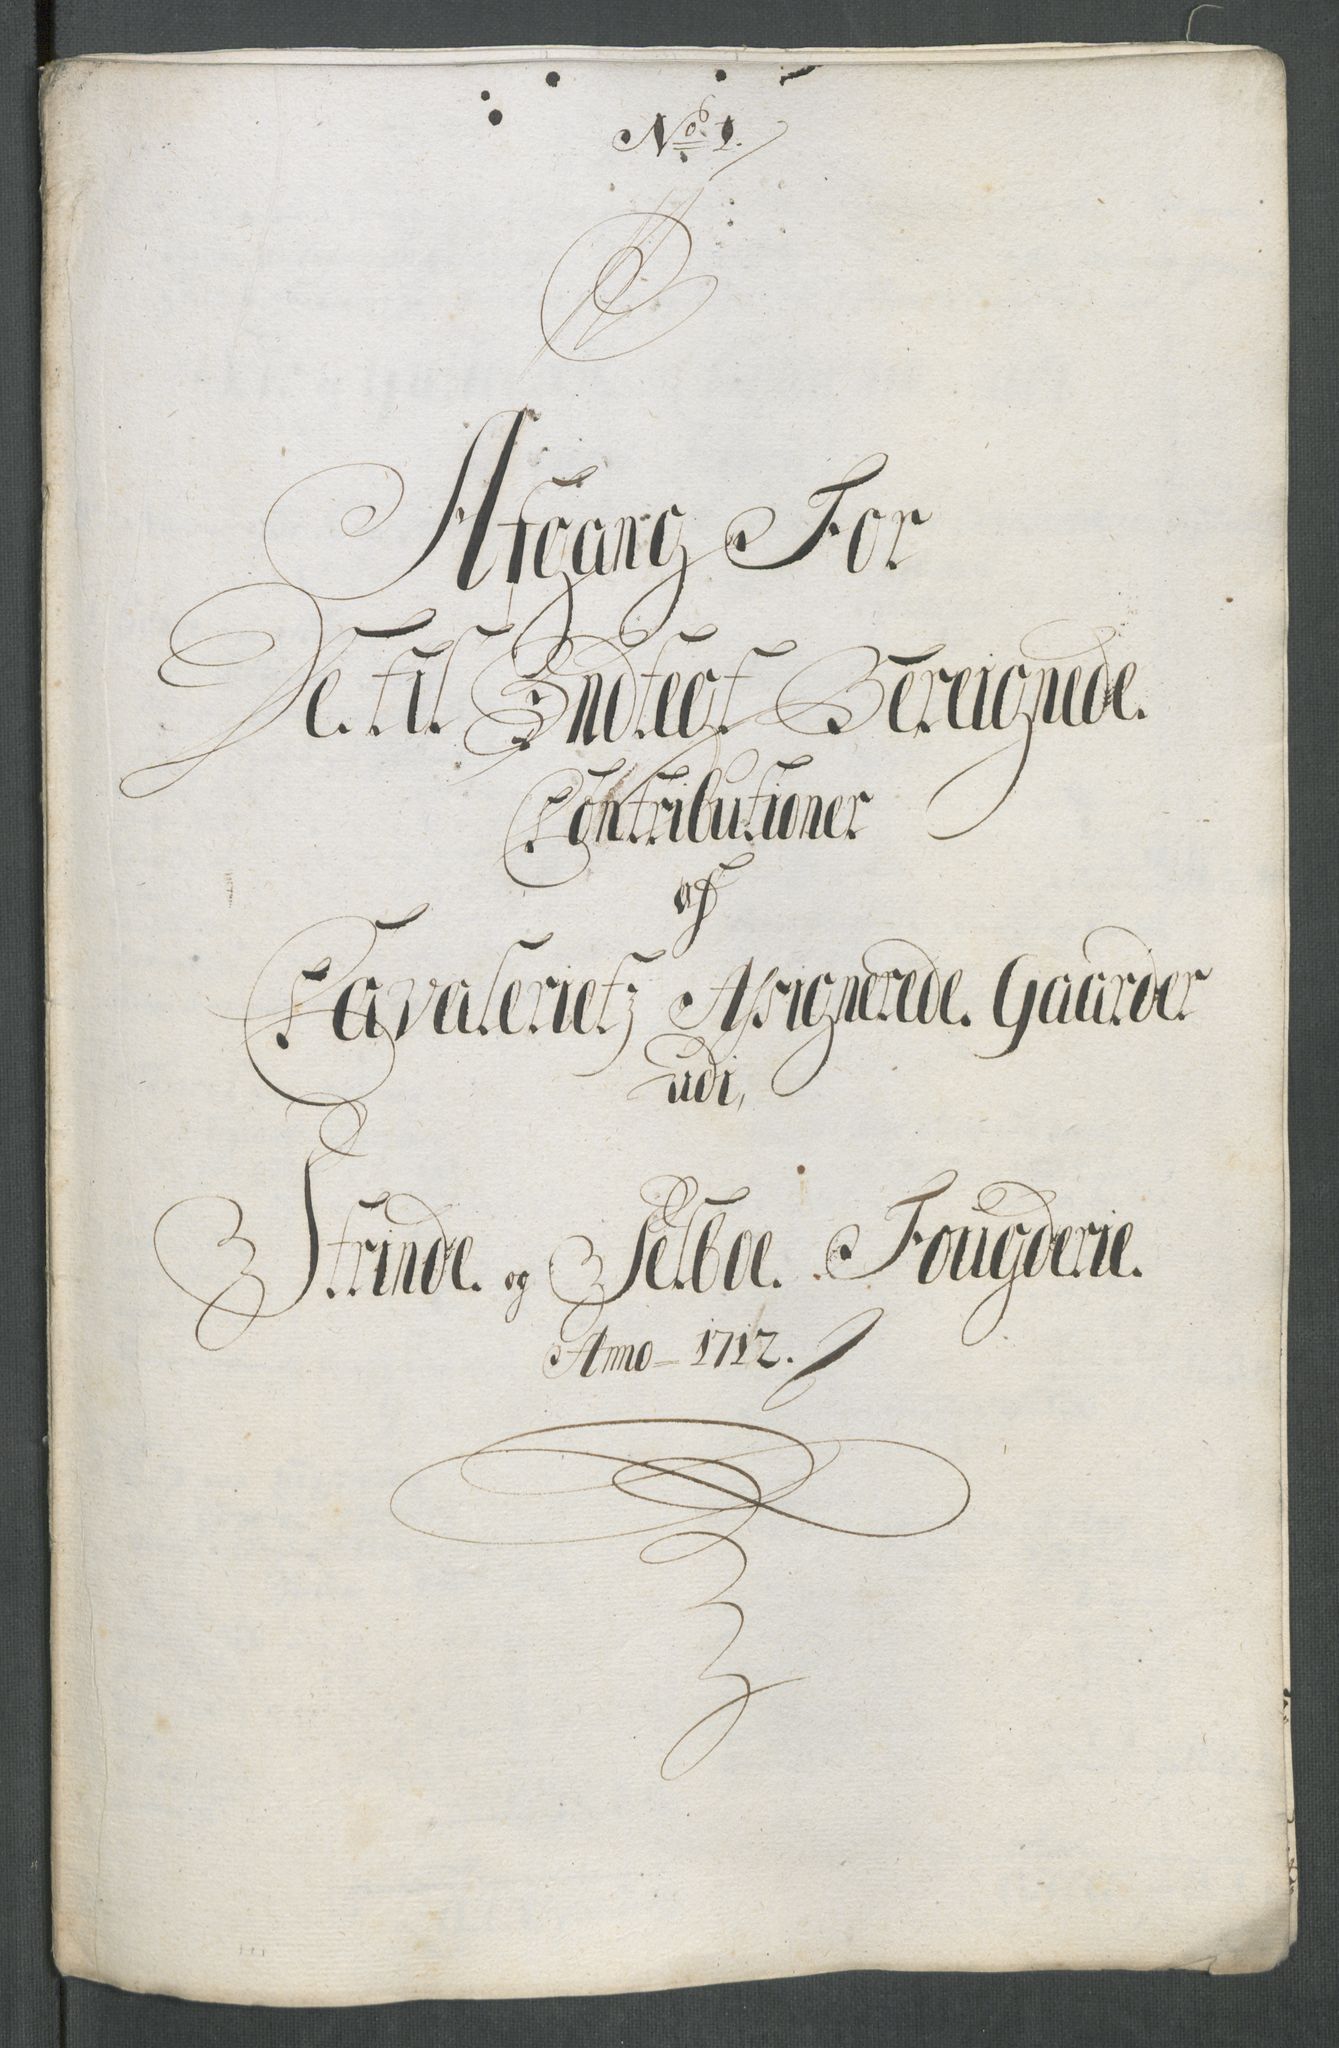 No 1.
Afgang For
De til Indtegt Bereignede
Contributioner
af
Cavalerietz Assignerede Gaarder
udi,
Strinde og Selboe Fougderie
Anno 1712.